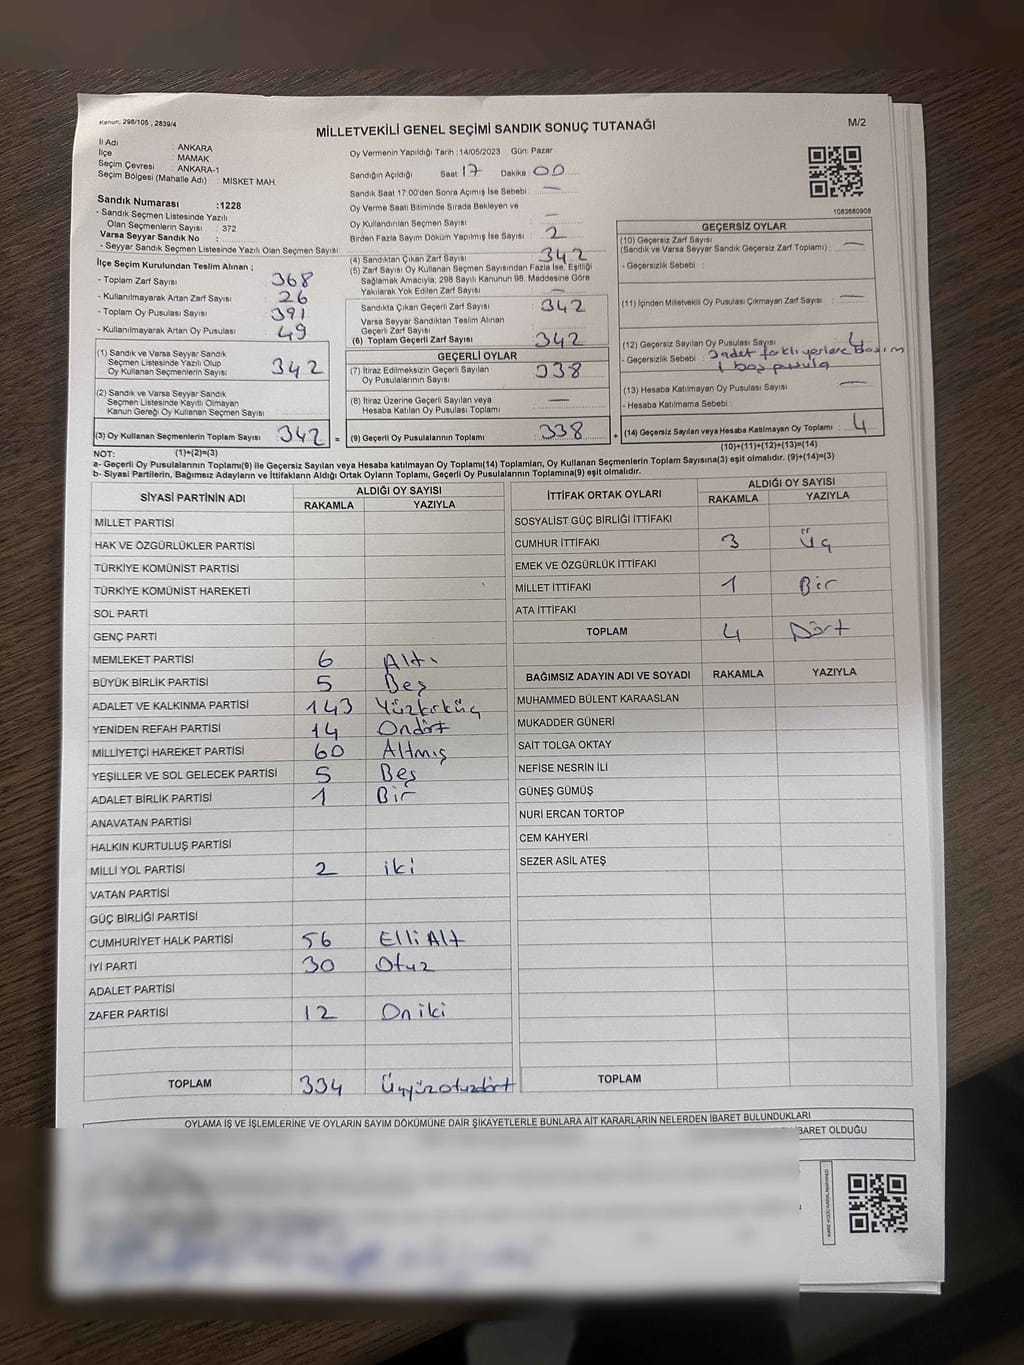 Kanun: 298/105 , 2839/4
MİLLETVEKİLİ GENEL SEÇİMİ SANDIK SONUÇ TUTANAĞI
M/2
İl Adı : ANKARA
İlçe : MAMAK
Seçim Çevresi : ANKARA-1
Seçim Bölgesi (Mahalle Adı) : MİSKET MAH.
Oy Vermenin Yapıldığı Tarih :14/05/2023 Gün: Pazar
Sandığın Açıldığı Saat 17 Dakika 00
Sandık Saat 17.00'den Sonra Açılmış İse Sebebi : —
Oy Verme Saati Bitiminde Sırada Bekleyen ve
Oy Kullandırılan Seçmen Sayısı : —
Birden Fazla Sayım Döküm Yapılmış İse Sayısı : 2
1083660908
Sandık Numarası :1228
- Sandık Seçmen Listesinde Yazılı
Olan Seçmenlerin Sayısı : 372
Varsa Seyyar Sandık No :
- Seyyar Sandık Seçmen Listesinde Yazılı Olan Seçmen Sayısı:
İlçe Seçim Kurulundan Teslim Alınan ;
- Toplam Zarf Sayısı : 368
- Kullanılmayarak Artan Zarf Sayısı : 26
- Toplam Oy Pusulası Sayısı : 391
- Kullanılmayarak Artan Oy Pusulası : 49
(1) Sandık ve Varsa Seyyar Sandık
Seçmen Listesinde Yazılı Olup
Oy Kullanan Seçmenlerin Sayısı : 342
(2) Sandık ve Varsa Seyyar Sandık
Seçmen Listesinde Kayıtlı Olmayan
Kanun Gereği Oy Kullanan Seçmen Sayısı :
(3) Oy Kullanan Seçmenlerin Toplam Sayısı : 342 =
(4) Sandıktan Çıkan Zarf Sayısı : 342
(5) Zarf Sayısı Oy Kullanan Seçmen Sayısından Fazla İse, Eşitliği
Sağlamak Amacıyla, 298 Sayılı Kanunun 98. Maddesine Göre
Yakılarak Yok Edilen Zarf Sayısı : —
Sandıkta Çıkan Geçerli Zarf Sayısı : 342
Varsa Seyyar Sandıktan Teslim Alınan
Geçerli Zarf Sayısı :
(6) Toplam Geçerli Zarf Sayısı : 342
GEÇERLİ OYLAR
(7) İtiraz Edilmeksizin Geçerli Sayılan
Oy Pusulalarının Sayısı : 338
(8) İtiraz Üzerine Geçerli Sayılan veya
Hesaba Katılan Oy Pusulası Toplamı : —
(9) Geçerli Oy Pusulalarının Toplamı : 338 +
GEÇERSİZ OYLAR
(10) Geçersiz Zarf Sayısı
(Sandık ve Varsa Seyyar Sandık Geçersiz Zarf Toplamı) : —
- Geçersizlik Sebebi :
(11) İçinden Milletvekili Oy Pusulası Çıkmayan Zarf Sayısı : —
(12) Geçersiz Sayılan Oy Pusulası Sayısı : 4
- Geçersizlik Sebebi : 3 adet farklı yerlere basım
1 boş pusula
(13) Hesaba Katılmayan Oy Pusulası Sayısı : —
- Hesaba Katılmama Sebebi :
(14) Geçersiz Sayılan veya Hesaba Katılmayan Oy Toplamı : 4
NOT: (1)+(2)=(3)
(10)+(11)+(12)+(13)=(14)
a- Geçerli Oy Pusulalarının Toplamı(9) ile Geçersiz Sayılan veya Hesaba katılmayan Oy Toplamı(14) Toplamları, Oy Kullanan Seçmenlerin Toplam Sayısına(3) eşit olmalıdır. (9)+(14)=(3)
b- Siyasi Partilerin, Bağımsız Adayların ve İttifakların Aldığı Ortak Oyların Toplamı, Geçerli Oy Pusulalarının Toplamına(9) eşit olmalıdır.
SİYASİ PARTİNİN ADI ALDIĞI OY SAYISI
RAKAMLA YAZIYLA
MİLLET PARTİSİ
HAK VE ÖZGÜRLÜKLER PARTİSİ
TÜRKİYE KOMÜNİST PARTİSİ
TÜRKİYE KOMÜNİST HAREKETİ
SOL PARTİ
GENÇ PARTİ
MEMLEKET PARTİSİ 6 Altı
BÜYÜK BİRLİK PARTİSİ 5 Beş
ADALET VE KALKINMA PARTİSİ 143 Yüzkırküç
YENİDEN REFAH PARTİSİ 14 Ondört
MİLLİYETÇİ HAREKET PARTİSİ 60 Altmış
YEŞİLLER VE SOL GELECEK PARTİSİ 5 Beş
ADALET BİRLİK PARTİSİ 1 Bir
ANAVATAN PARTİSİ
HALKIN KURTULUŞ PARTİSİ
MİLLİ YOL PARTİSİ 2 iki
VATAN PARTİSİ
GÜÇ BİRLİĞİ PARTİSİ
CUMHURİYET HALK PARTİSİ 56 Elli Alt
İYİ PARTİ 30 Otuz
ADALET PARTİSİ
ZAFER PARTİSİ 12 Oniki
TOPLAM 334 Üçyüzotuzdört
İTTİFAK ORTAK OYLARI ALDIĞI OY SAYISI
RAKAMLA YAZIYLA
SOSYALİST GÜÇ BİRLİĞİ İTTİFAKI
CUMHUR İTTİFAKI 3 Üç
EMEK VE ÖZGÜRLÜK İTTİFAKI
MİLLET İTTİFAKI 1 Bir
ATA İTTİFAKI
TOPLAM 4 Dört
BAĞIMSIZ ADAYIN ADI VE SOYADI RAKAMLA YAZIYLA
MUHAMMED BÜLENT KARAASLAN
MUKADDER GÜNERİ
SAİT TOLGA OKTAY
NEFİSE NESRİN İLİ
GÜNEŞ GÜMÜŞ
NURİ ERCAN TORTOP
CEM KAHYERİ
SEZER ASİL ATEŞ
TOPLAM
OYLAMA İŞ VE İŞLEMLERİNE VE OYLARIN SAYIM DÖKÜMÜNE DAİR ŞİKAYETLERLE BUNLARA AİT KARARLARIN NELERDEN İBARET BULUNDUKLARI
İBARET OLDUĞU